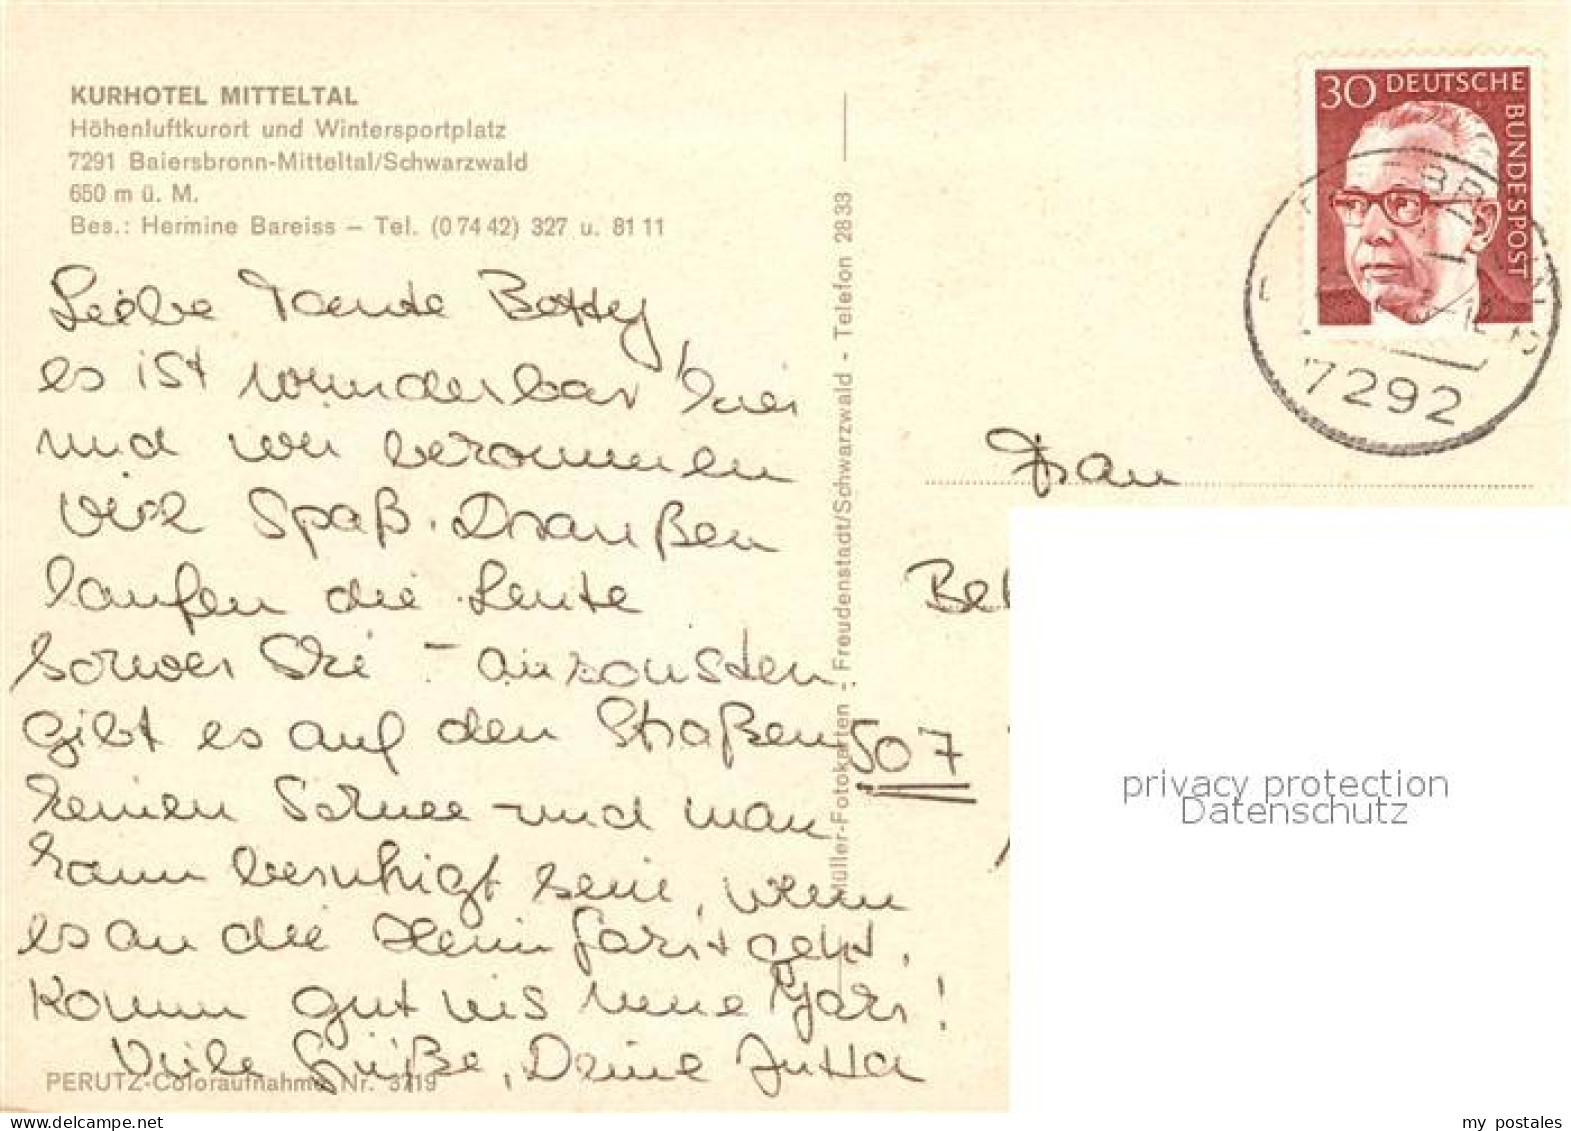 KURHOTEL MITTELTAL
Höhenluftkurort und Wintersportplatz
7291 Baiersbronn-Mitteltal/Schwarzwald
650 m ü. M.
Bes.: Hermine Bareiss – Tel. (0 74 42) 327 u. 81 11
Liebe Tante Betty,
es ist wunderbar hier
und wir bekommen
viel Spaß. Draußen
laufen die Leute
schwer Ski – ansonsten
gibt es auf den Straßen
keinen Schnee – und man
kann beruhigt sein, wenn
es an die Heimfahrt geht.
Komm gut ins neue Jahr!
Viele Grüße, Deine Jutta
PERUTZ-Coloraufnahme Nr. 3719
Müller-Fotokarten - Freudenstadt/Schwarzwald - Telefon 28 33
30 DEUTSCHE
BUNDESPOST
7292
Frau
Bet
507
privacy protection
Datenschutz
Delcampe.net
my_postales